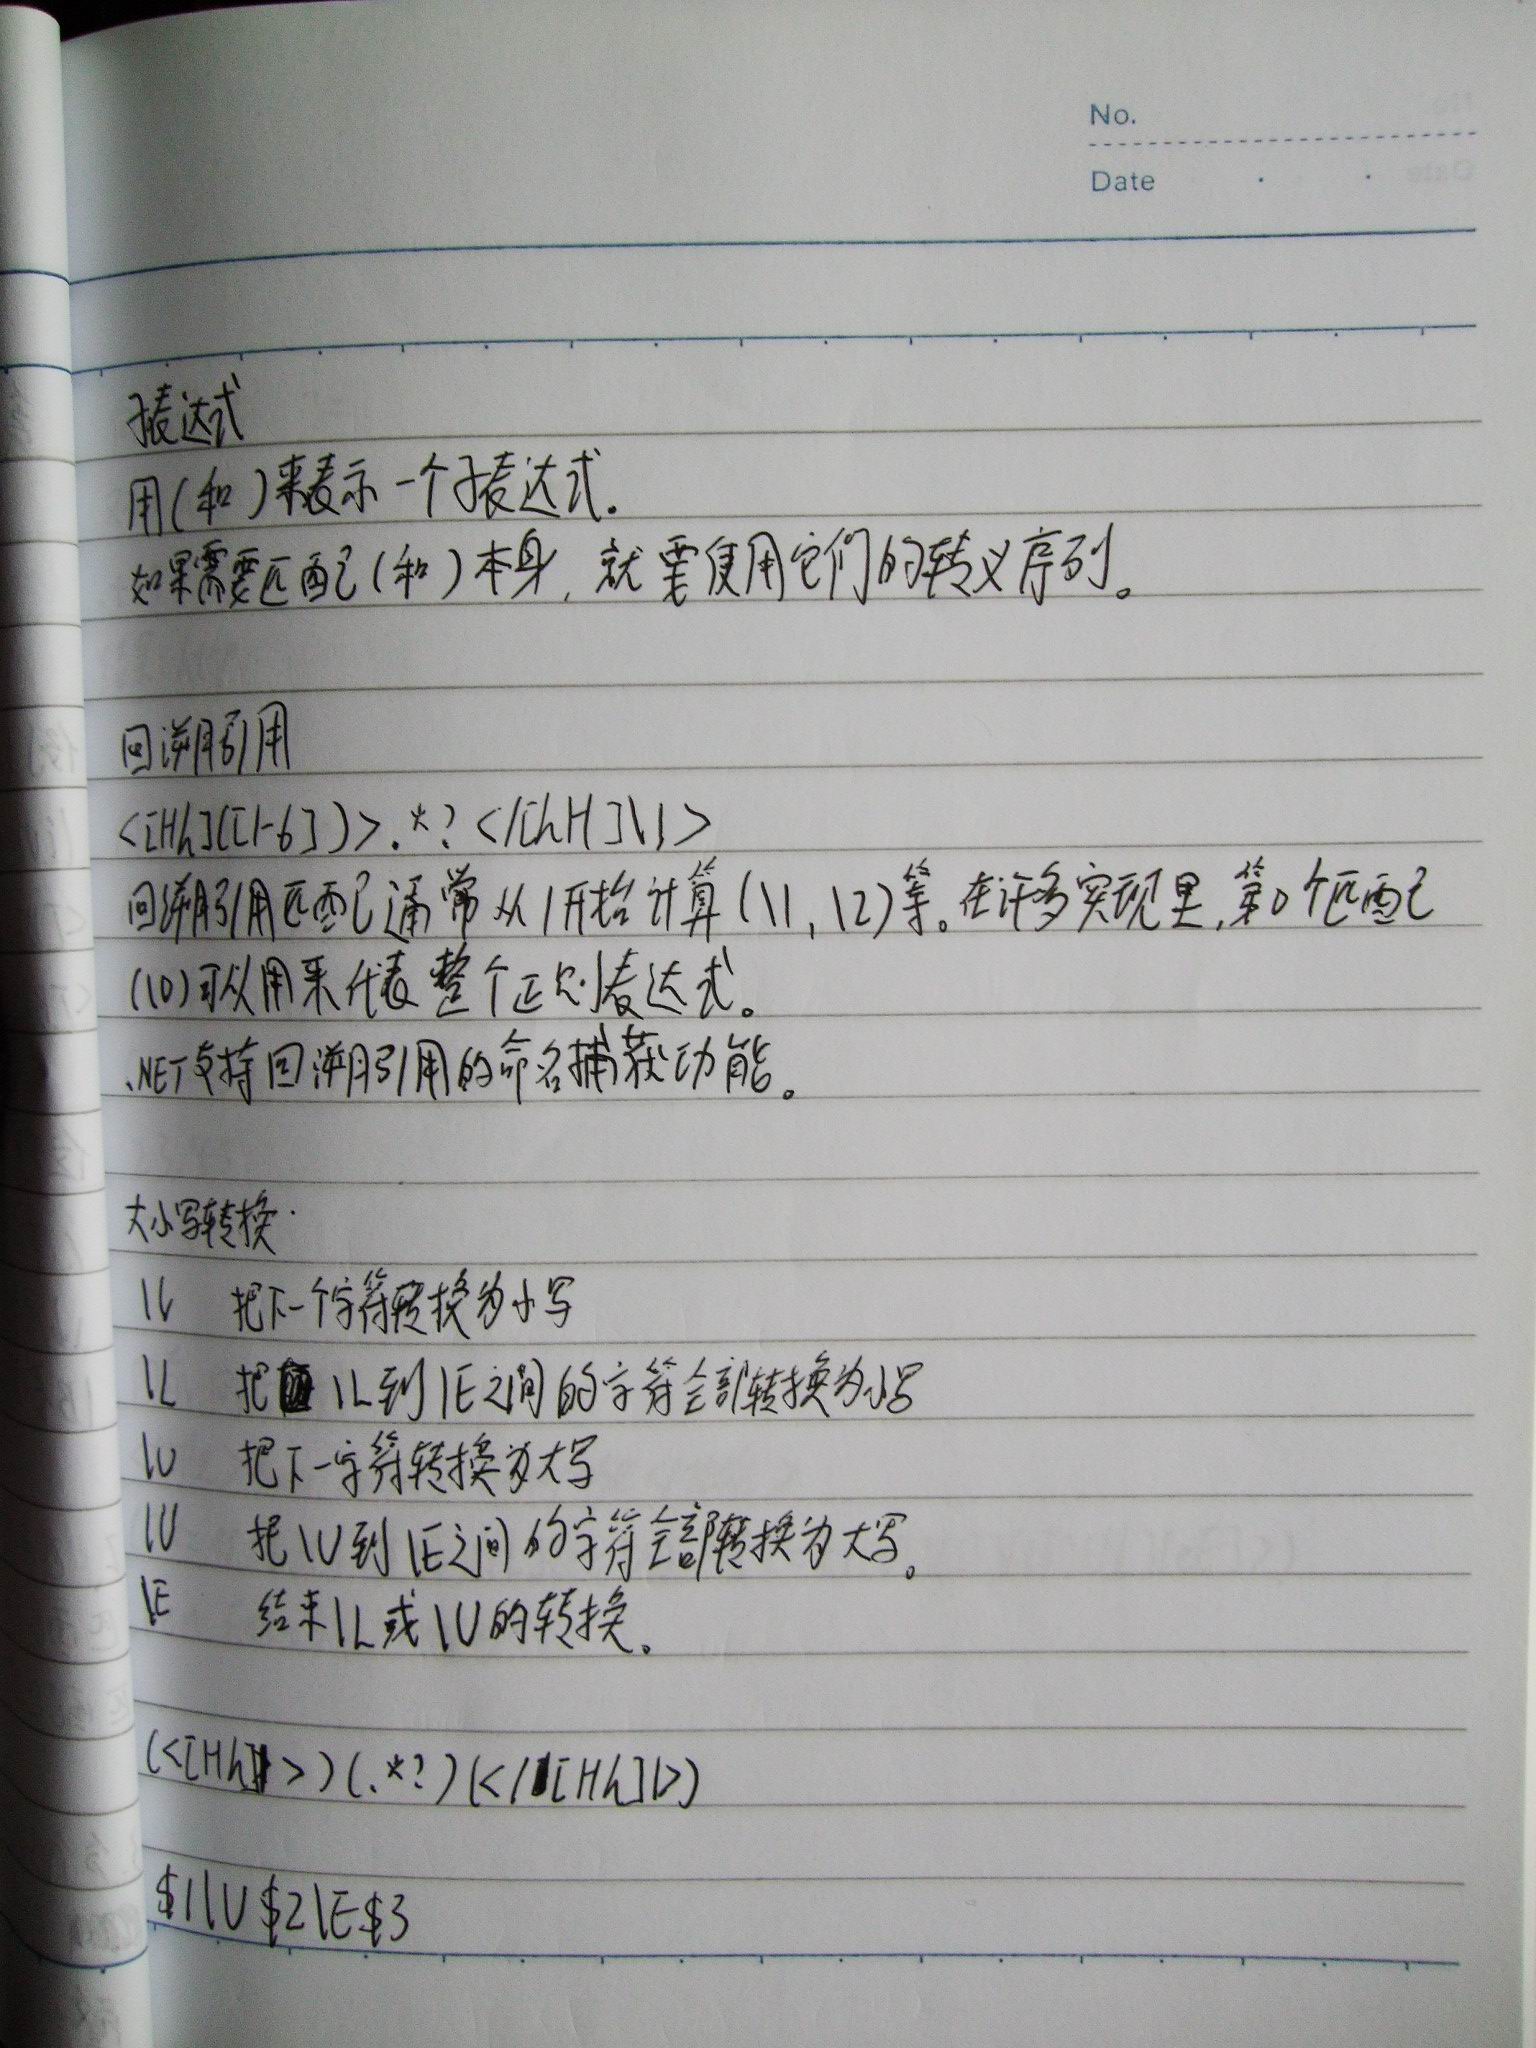 No.
Date
子表达式
用(和)来表示一个子表达式.
如果需要匹配(和)本身,就要使用它们的转义序列。
回溯引用
<[Hh]([1-6])>.*?</[hH]\1>
回溯引用匹配通常从1开始计算(\1,\2)等。在许多实现里,第0个匹配
(\0)可以用来代表整个正则表达式。
.NET支持回溯引用的命名捕获功能。
大小写转换.
\l 把下一个字符转换为小写
\L 把\L到\E之间的字符全部转换为小写
\u 把下一字符转换为大写
\U 把\U到\E之间的字符全部转换为大写。
\E 结束\L或\U的转换。
(<[Hh]1>)(.*?)(</[Hh]1>)
$1\U$2\E$3